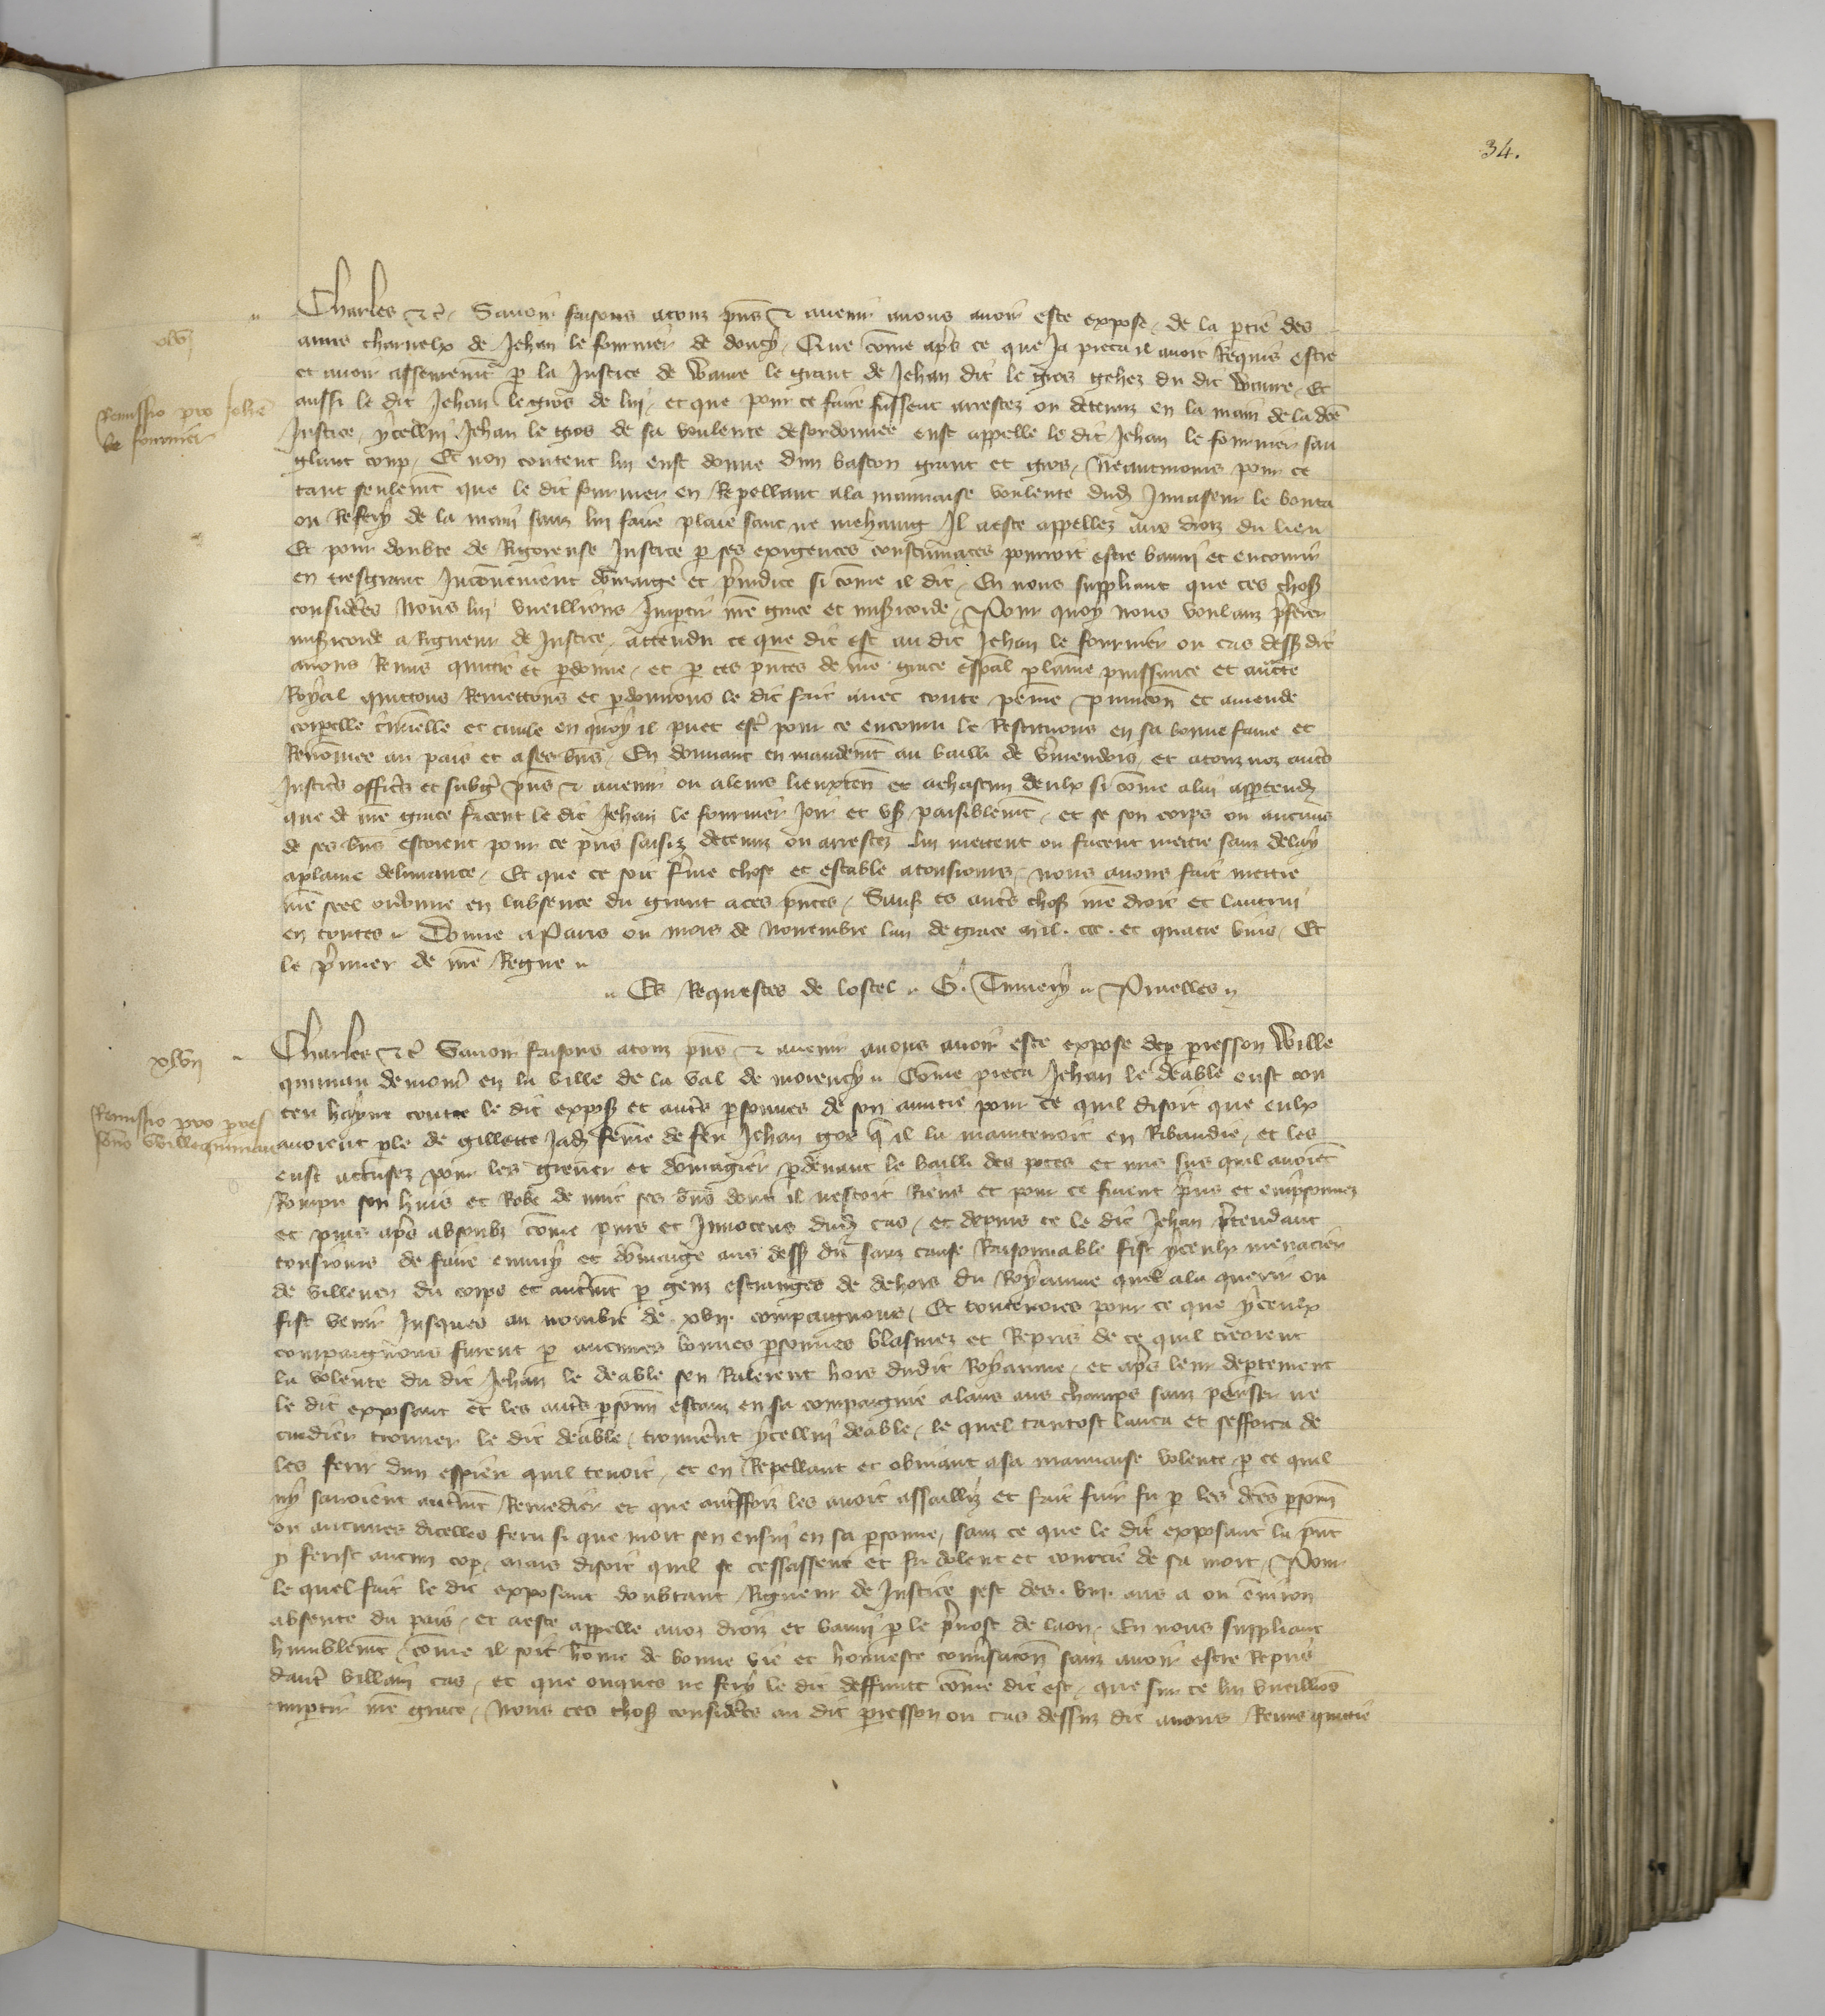 34.
Charles etc. Savoir faisons a touz pns et avenir a nous avoir este expose de la ptie des
amis charnelx de Jehan le fournier de doucy Que come aps ce que Ja pieca il avoit Requis estre
et avoir asseurement p la Justice de Wavre le grant de Jehan dit le gros gehez du dit Wavre Et
aussi le dit Jehan le gros de lui et que pour ce faire fussent arrestez ou detenuz en la main de la dce
Remissio pro Johe
le fournier
Justice ycellui Jehan le gros de sa voulente desordonnee eust appelle le dit Jehan le fournier san
glant coup Et non content lui eust donne dun baston grant et gros Neantmoins pour ce
tant seulemt que le dit fournier en Repellant a la mauvaise voulente dud Invaseur le bouta
ou Refery de la main sanz lui faire plaie sanc ne mehaing Il a este appellez aus droiz du lieu
Et pour doubte de Rigoreuse Justice p ses exigences contumaces pourroit estre banni et encourir
en tresgrant Inconvenient domaige et preiudice si come il dit En nous suppliant que ces choses
considerees Nous lui vueillions Impartir nre grace et misericorde Pour quoy nous voulanz preferer
misericorde a Rigueur de Justice attendu ce que dit est au dit Jehan le fournier ou cas dessus dit
avons Remis quittie et pdonne et p ces pntes de nre grace espal plaine puissance et aucte
Royal quittons Remettons et pdonnons le dit fait avec toute peine punicon et amende
corpelle criminelle et civile en quoy il puet estre pour ce encouru le Restituons en sa bonne fame et
Renomee au pais et a ses biens En donnant en mandemt au bailli de Vmendois et a touz noz autres
Justiciers officiers et subgiez pns et avenir ou a leurs lieuxten et a chascun deulx si come a lui apptendra
que de nre grace facent le dit Jehan le fournier Joir et user paisiblemt et se son corps ou aucuns
de ses biens estoient pour ce pris saisiz detenuz ou arrestez lui mettent ou facent mettre sanz delay
a plaine delivrance Et que ce soit ferme chose et estable a tousiours nous avons fait mettre
nre seel ordonne en labsence du grant a ces pntes Sauf es autres choses nre droit et lautrui
en toutes Donne a Paris ou mois de Novembre lan de grace mil ccc et quatre vins Et
le premier de nre Regne
Es Requestes de lostel G. Tumery Pruelles
xlvii
Charles etc Savoir faisons a touz pns et avenir a nous avoir este expose de p presson Wille
quinan demour en la ville de la val de morency Come pieca Jehan le deable eust con
ceu hayne contre le dit expos et autres psonnes de son amitie pour ce quil disoit que eulx
Remissio pro pres
sono Willequinan
avoient ple de gillette Jadis feme de feu Jehan gos q il la maintenoit en Ribaudie et les
eust accusez pour les grever et domagier p devant le bailli des ptes et mis sus quil avoient
Rompu son huis et Robe de nuit ses biens dont il nestoit Riens et pour ce furent pris et emprisonnez
et puis aps absoubz come purs et Innocens dud cas et depuis ce le dit Jehan pretendant
tousiours de faire ennuy et domaige aus dess diz sanz cause Raisonnable fist yceulx menacier
de villener du corps et autremt p genz estranges de dehors du Royaume quil ala querir ou
fist venir Jusques au nombre de xvii compaignons Et toutevoies pour ce que yceulx
compaignons furent p aucunes bonnes psonnes blasmez et Repris de ce quil creoient
la volente du dit Jehan le deable sen Ralerent hors dudit Royaume et aps leur deptement
le dit exposant et les autres psonnes estanz en sa compaignie alans aus champs sanz penser ne
cuidier trouver le dit deable trouverent ycellui deable le quel tantost lanca et sefforca de
les ferir dun espieu quil tenoit et en Repellant et obviant a sa mauvaise volente p ce quil
ny savoient autremt Remedier et que autreffoiz les avoit assailliz et fait fuir fu p les dces psonnes
ou aucunes dicelles feru si que mort sen ensui en sa psonne sanz ce que le dit exposant la pnt
y ferist aucun cop mais disoit quil se cessassent et fu dolent et courcie de sa mort Pour
le quel fait le dit exposant doubtant Rigueur de Justice sest des vii ans a ou environ
absente du pais et a este appelle a noz droiz et banni p le prevost de laon En nous suppliant
humblemt come il soit home de bonne vie et honneste conversacon sanz avoir este Repris
dautre villain cas et que onques ne fery le dit deffunct come dit est que sur ce lui vueillions
impartir nre grace Nous ces choses considerees au dit presson ou cas dessuz dit avons Remis quittie